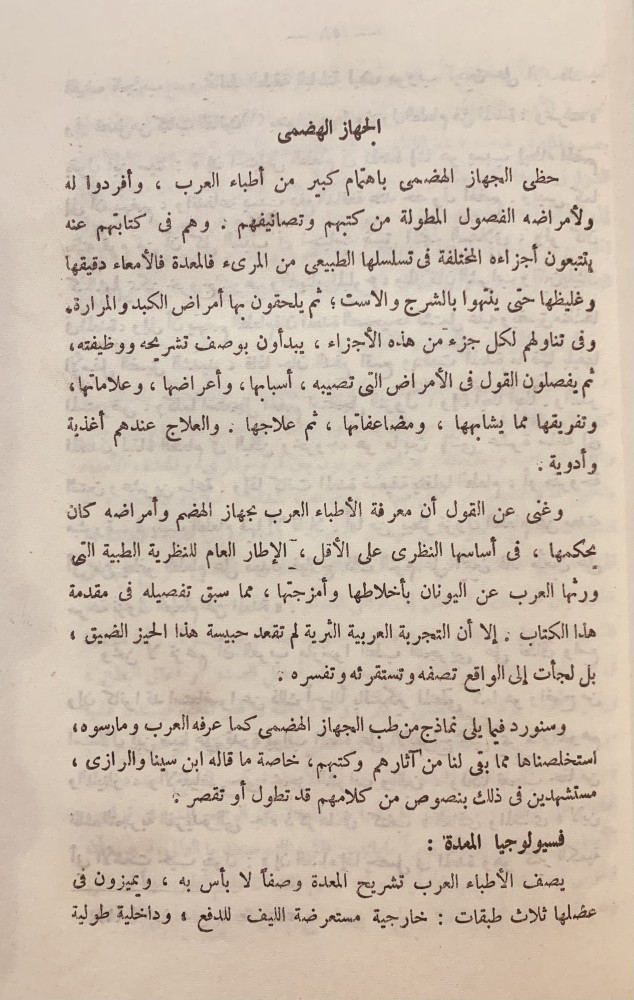 الجهاز الهضمى
حظى الجهاز الهضمى باهتمام كبير من أطباء العرب ، وأفردوا له
ولأمراضه الفصول المطولة من كتبهم وتصانيفهم . وهم فى كتابتهم عنه
يتتبعون أجزاءه المختلفة فى تسلسلها الطبيعى من المرىء فالمعدة فالأمعاء دقيقها
وغليظها حتى ينتهوا بالشرج والاست ؛ ثم يلحقون بها أمراض الكبد والمرارة.
وفى تناولهم لكل جزء من هذه الأجزاء ، يبدأون بوصف تشريحه ووظيفته،
ثم يفصلون القول فى الأمراض التى تصيبه ، أسبابها ، وأعراضها ، وعلاماتها،
وتفريقها مما يشابهها ، ومضاعفاتها ، ثم علاجها . والعلاج عندهم أغذية
وأدوية .
وغنى عن القول أن معرفة الأطباء العرب بجهاز الهضم وأمراضه كان
يحكمها ، فى أساسها النظرى على الأقل ، الإطار العام للنظرية الطبية التى
ورثها العرب عن اليونان بأخلاطها وأمزجتها ، مما سبق تفصيله فى مقدمة
هذا الكتاب . إلا أن التجربة العربية الثرية لم تقعد حبيسة هذا الحيز الضيق ،
بل لجأت إلى الواقع تصفه وتستقرئه وتفسره .
وسنورد فيما يلى نماذج من طب الجهاز الهضمى كما عرفه العرب ومارسوه،
استخلصناها مما بقى لنا من آثارهم وكتبهم، خاصة ما قاله ابن سينا والرازى ،
مستشهدين فى ذلك بنصوص من كلامهم قد تطول أو تقصر .
فسيولوجيا المعدة :
يصف الأطباء العرب تشريح المعدة وصفاً لا بأس به ، ويميزون فى
عضلها ثلاث طبقات : خارجية مستعرضة الليف للدفع ، وداخلية طولية